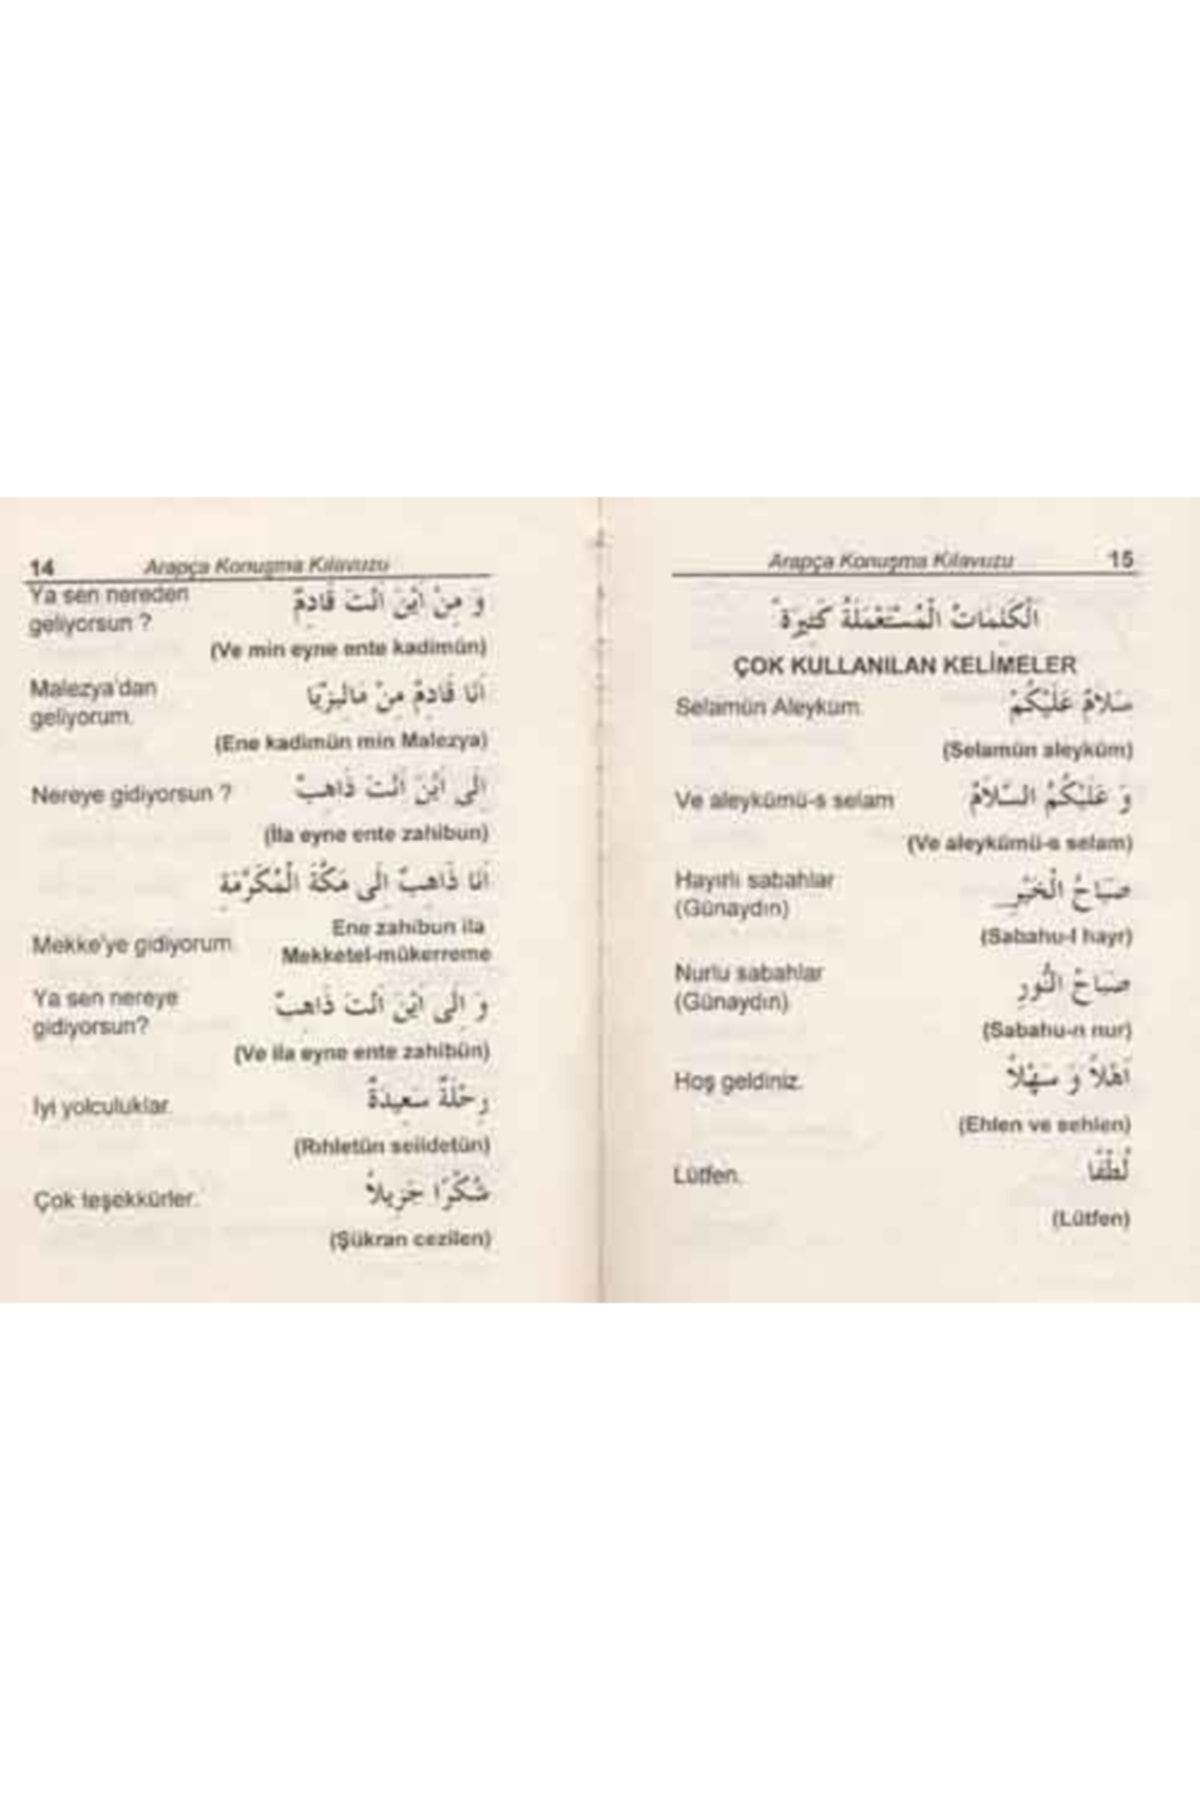 14 Arapça Konuşma Kılavuzu
Ya sen nereden
geliyorsun ?
وَ مِنْ اَيْنَ اَنْتَ قَادِمٌ
(Ve min eyne ente kadimün)
Malezya'dan
geliyorum.
اَنَا قَادِمٌ مِنْ مَالِيزْيَا
(Ene kadimün min Malezya)
Nereye gidiyorsun ?
اِلَى اَيْنَ اَنْتَ ذَاهِبٌ
(İla eyne ente zahibun)
اَنَا ذَاهِبٌ اِلَى مَكَّةَ الْمُكَرَّمَةِ
Ene zahibun ila
Mekke'ye gidiyorum.
Mekketel-mükerreme
Ya sen nereye
gidiyorsun?
وَ اِلَى اَيْنَ اَنْتَ ذَاهِبٌ
(Ve ila eyne ente zahibün)
İyi yolculuklar.
رِحْلَةٌ سَعِيدَةٌ
(Rıhletün seiidetün)
Çok teşekkürler.
شُكْرًا جَزِيلاً
(Şükran cezilen)
Arapça Konuşma Kılavuzu 15
اَلْكَلِمَاتُ الْمُسْتَعْمَلَةُ كَثِيرَةً
ÇOK KULLANILAN KELİMELER
Selamün Aleyküm.
سَلاَمٌ عَلَيْكُمْ
(Selamün aleyküm)
Ve aleykümü-s selam
وَ عَلَيْكُمُ السَّلاَمُ
(Ve aleykümü-s selam)
Hayırlı sabahlar
(Günaydın)
صَبَاحُ الْخَيْرِ
(Sabahu-l hayr)
Nurlu sabahlar
(Günaydın)
صَبَاحُ النُّورِ
(Sabahu-n nur)
Hoş geldiniz.
اَهْلاً وَ سَهْلاً
(Ehlen ve sehlen)
Lütfen.
لُطْفًا
(Lütfen)